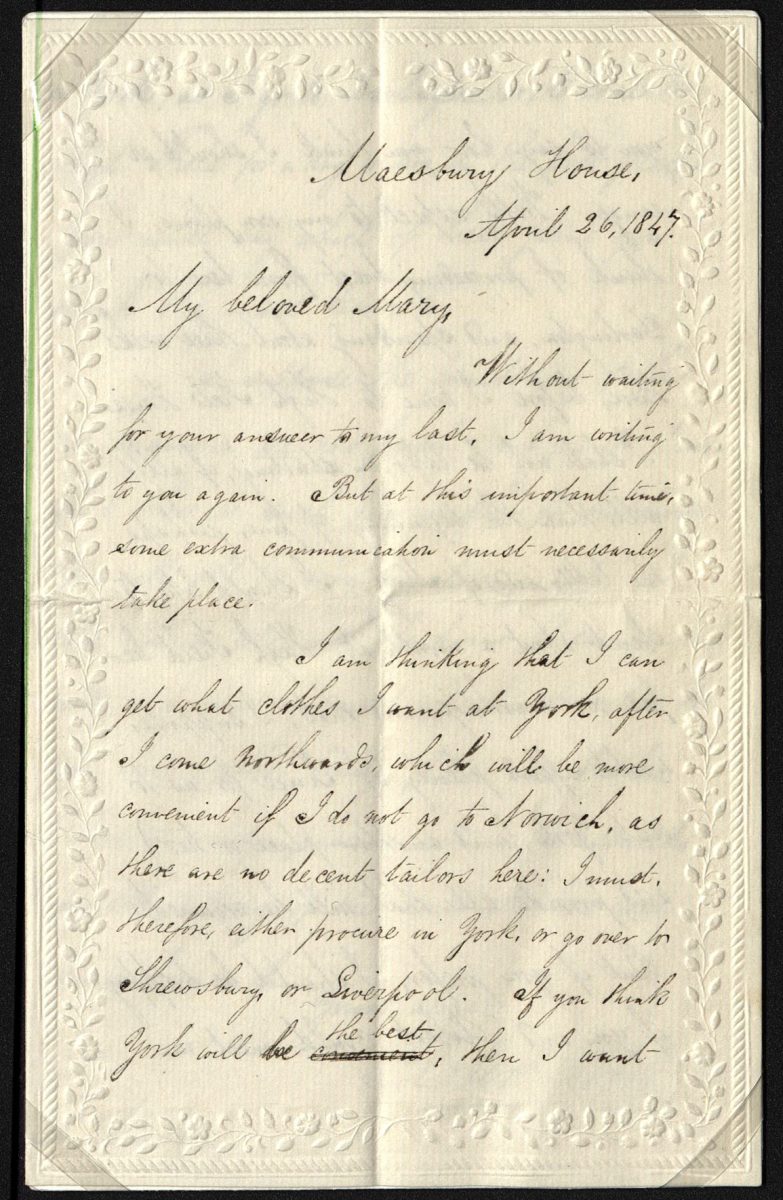 Maesbury House,
April 26, 1847.
My beloved Mary,
Without waiting
for your answer to my last, I am writing
to you again. But at this important time,
some extra communication must necessarily
take place.
I am thinking that I can
get what clothes I want at York, after
I come Northwards, which will be more
convenient if I do not go to Norwich, as
there are no decent tailors here: I must,
therefore, either procure in York, or go over to
Shrewsbury, or Liverpool. If you think
the best
York will be convenient, then I want